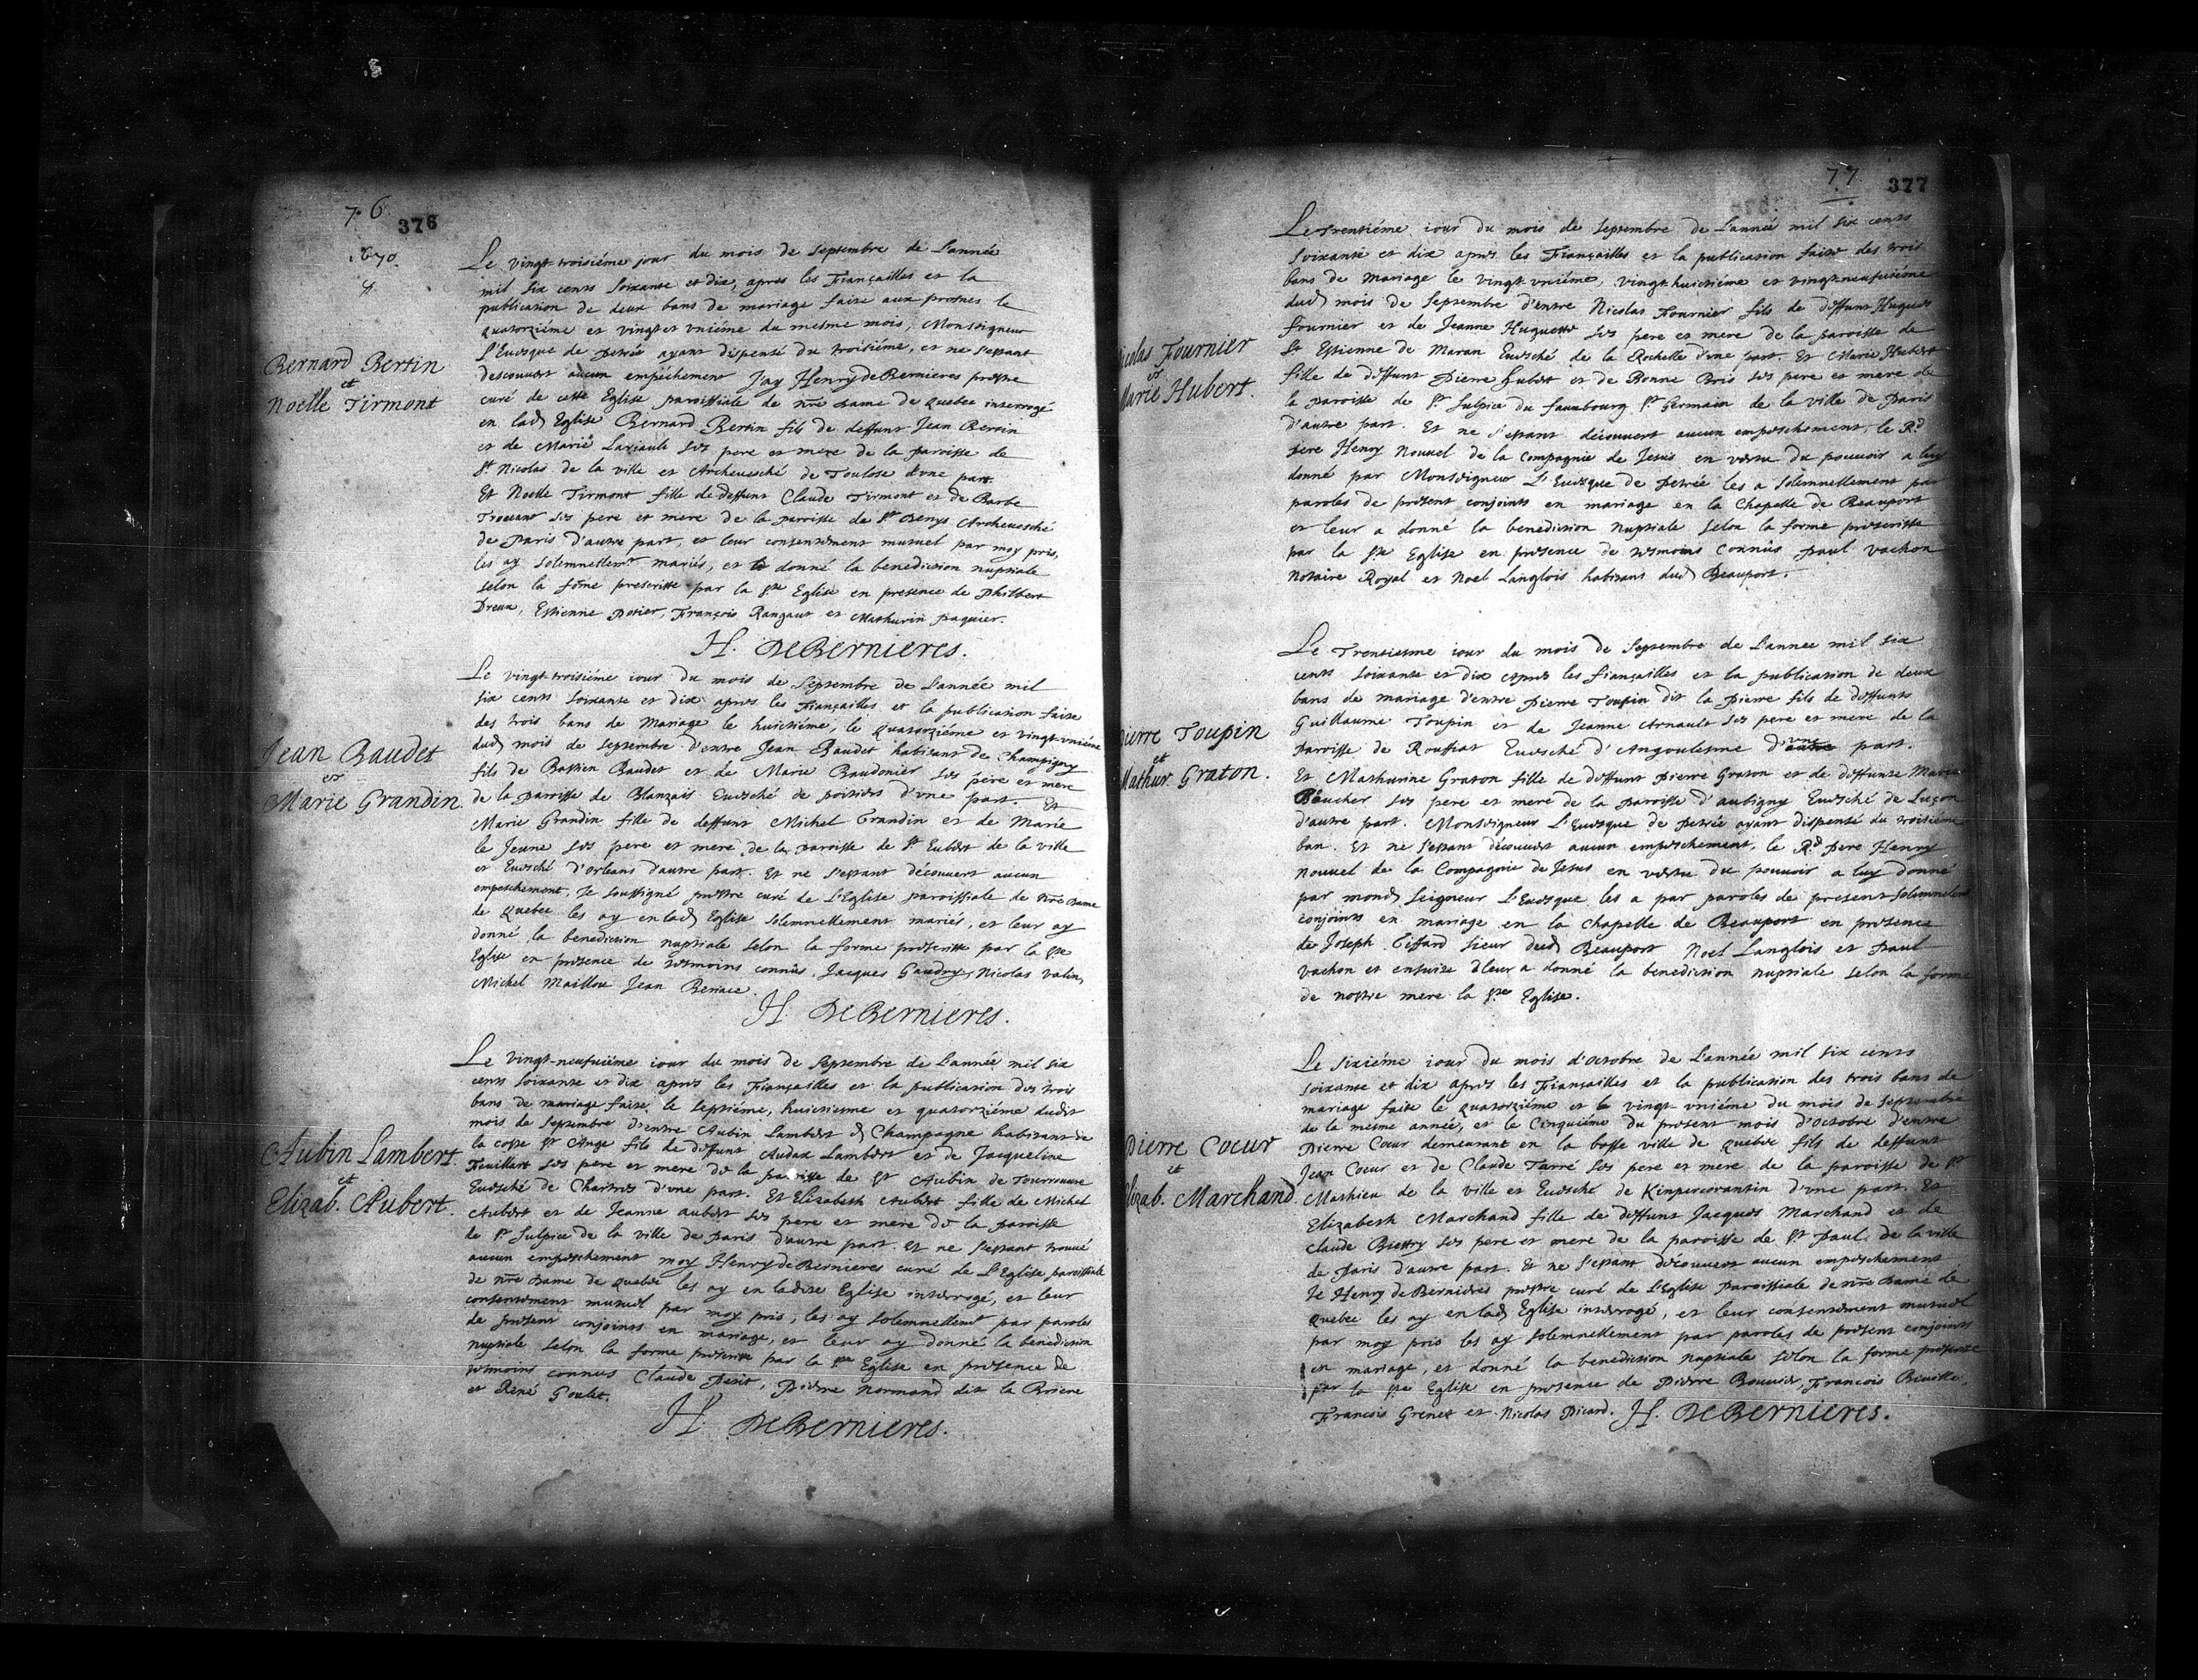 76
376
1670.
Bernard Bertin
et
Noelle Tirmont
Le vingt-troisiéme jour du mois de Septembre de L'année
mil six cents soixante et dix, apres les Fiançailles et la
publication de deux bans de mariage faite aux prosnes le
quatorziéme et vingt et vniéme du mesme mois, Monseigneur
L'Euesque de petrée ayant dispensé du troisiéme, et ne s'estant
descouuert aucun empêchement Jay Henry de Bernieres prestre
curé de cette Eglise paroissiale de nre Dame de Quebec interrogé
en lad Eglise Bernard Bertin fils de deffunt Jean Bertin
et de Marie ses pere et mere de la paroisse de
St Nicolas de la ville et Archeuesché de Toulose d'vne part.
Et Noelle Tirmont fille de deffunt Claude Tirmont et de Barbe
ses pere et mere de la paroisse de St Denys Archeuesché
de Paris d'autre part, et leur consentement mutuel par moy pris,
les ay solemnellemt mariés, et donné la benediction nuptiale
selon la fôme prescritte par la Ste Eglise en presence de Philbert
Dreux, Estienne Potier, François Rangaut et Mathurin paquier.
H. DeBernieres.
Jean Baudet
et
Marie Grandin.
Le vingt-troisiéme iour du mois de Septembre de L'année mil
six cents soixante et dix apres les Fiançailles et la publication faite
des trois bans de Mariage le huictiéme, le quatorziéme et vingt-vniéme
dud mois de Septembre d'entre Jean Baudet habitant de Champigny
fils de Bastien Baudet et de Marie Baudonier ses pere et mere
de la paroisse de Blanzais Euesché de poitiers d'vne part. Et
Marie Grandin fille de deffunt Michel Grandin et de Marie
le Jeune ses pere et mere de la paroisse de St Eubert de la ville
et Euesché d'orleans d'autre part. Et ne s'estant découuert aucun
empeschement, Je soussigné prestre curé de L'Eglise paroissiale de nre Dame
de Quebec les ay en lad Eglise solemnellement mariés, et leur ay
donné la benediction nuptiale selon la forme prescritte par la Ste
Eglise en presence de tesmoins connûs, Jacques Gaudry, Nicolas valin,
Michel Maillou Jean
H. DeBernieres.
Aubin Lambert.
et
Elizab. Aubert.
Le vingt-neufuiéme iour du mois de Septembre de L'année mil six
cents soixante et dix apres les Fiançailles et la publication des trois
bans de mariage faite le septiéme, huictiesme et quatorziéme dudit
mois de Septembre d'entre Aubin Lambert d Champagne habitant de
la coste St Ange fils de deffunt Audax Lambert et de Jacqueline
Feuillart ses pere et mere de la paroisse de St Aubin de Tourouure
Euesché de Chartres d'vne part. Et Elizabeth Aubert fille de Michel
Aubert et de Jeanne aubert ses pere et mere de la paroisse
de St Sulpice de la ville de Paris d'autre part. Et ne s'estant trouué
aucun empeschement moy Henry de Bernieres curé de L'Eglise paroissiale
de nre Dame de Quebec les ay en ladite Eglise interrogé, et leur
consentement mutuel par moy pris, les ay solemnellemt par paroles
de present conjoints en mariage, et leur ay donné la benediction
nuptiale selon la forme prescritte par la Ste Eglise en presence de
tesmoins connus Claude Petit, Pierre Normand dit la Briere
et René Goulet.
H. DeBernieres.
77
377
icolas Fournier
et
Marie Hubert.
Le Trentiéme iour du mois de Septembre de L'année mil six cents
soixante et dix apres les Fiançailles et la publication faite des trois
bans de Mariage le vingt vniéme, vingt-huictiéme et vingt-neufuiéme
dud mois de Septembre d'entre Nicolas Fournier fils de deffunt Hugues
fournier et de Jeanne Huguette ses pere et mere de la paroisse de
St Estienne de Maran Euesché de la Rochelle d'vne part. Et Marie Hubert
fille de deffunt Pierre hubert et de Bonne Brie ses pere et mere de
la paroisse de St Sulpice du fauxbourg St Germain de la ville de Paris
d'autre part. Et ne s'estant découuert aucun empeschement, le Rd
pere Henry Nouuel de la Compagnie de Jesus en vertu du pouuoir a luy
donné par Monseigneur L'Euesque de Petrée les a solemnellement par
paroles de present conjoints en mariage en la Chapelle de Beauport
et leur a donné la benediction nuptiale selon la forme prescritte
par la Ste Eglise en presence de tesmoins connûs Paul vachon
Notaire Royal et Noel Langlois habitans dud Beauport.
ierre Toupin
et
Mathur. Graton.
Le Trentiesme iour du mois de Septembre de L'annee mil six
cents soixante et dix apres les fiançailles et la publication de deux
bans de mariage d'entre Pierre Toupin dit la Pierre fils de deffunts
Guillaume Toupin et de Jeanne Arnault ses pere et mere de la
paroisse de Rouffiat Euesché d'Angoulesme d'vne part.
Et Mathurine Graton fille de deffunt Pierre Graton et de deffunte Marie
Boucher ses pere et mere de la paroisse d'aubigny Euesché de Luçon
d'autre part. Monseigneur L'Euesque de Petrée ayant dispensé du troisiéme
ban. Et ne s'estant découuert aucun empeschement, le Rd Pere Henry
Nouuel de la Compagnie de Jesus en vertu du pouuoir a luy donné
par mond Seigneur L'Euesque les a par paroles de present solemnelemt
conjoints en mariage en la chapelle de Beauport en presence
de Joseph Giffard Sieur dud Beauport Noel Langlois et Paul
vachon et ensuite il leur a donné la benediction nuptiale selon la forme
de nostre mere la Ste Eglise.
Pierre Coeur
et
Elizab. Marchand.
Le Sixiéme iour du mois d'octobre de L'année mil six cents
soixante et dix apres les Fiançailles et la publication des trois bans de
mariage faite le quatorziéme et le vingt-vniéme du mois de Septembre
de la mesme année, et le Cinquiéme du present mois d'octobre d'entre
Pierre Cœur demeurant en la basse ville de Quebec fils de deffunt
Jean Coeur et de Claude Tarré ses pere et mere de la paroisse de St
Mathieu de la ville et Euesché de Kinpercorantin d'vne part. Et
Elizabeth Marchand fille de deffunt Jacques Marchand et de
Claude ses pere et mere de la paroisse de St Paul de la ville
de Paris d'autre part. Et ne s'estant découuert aucun empeschement
Je Henry de Bernieres prestre curé de L'Eglise paroissiale de nre Dame de
Quebec les ay en lad Eglise interrogé, et leur consentement mutuel
par moy pris les ay solemnellement par paroles de present conjoints
en mariage, et donné la benediction nuptiale selon la forme prescritte
par la Ste Eglise en presence de Pierre Bouuier, François
François Grenet et Nicolas Picard. H. DeBernieres.